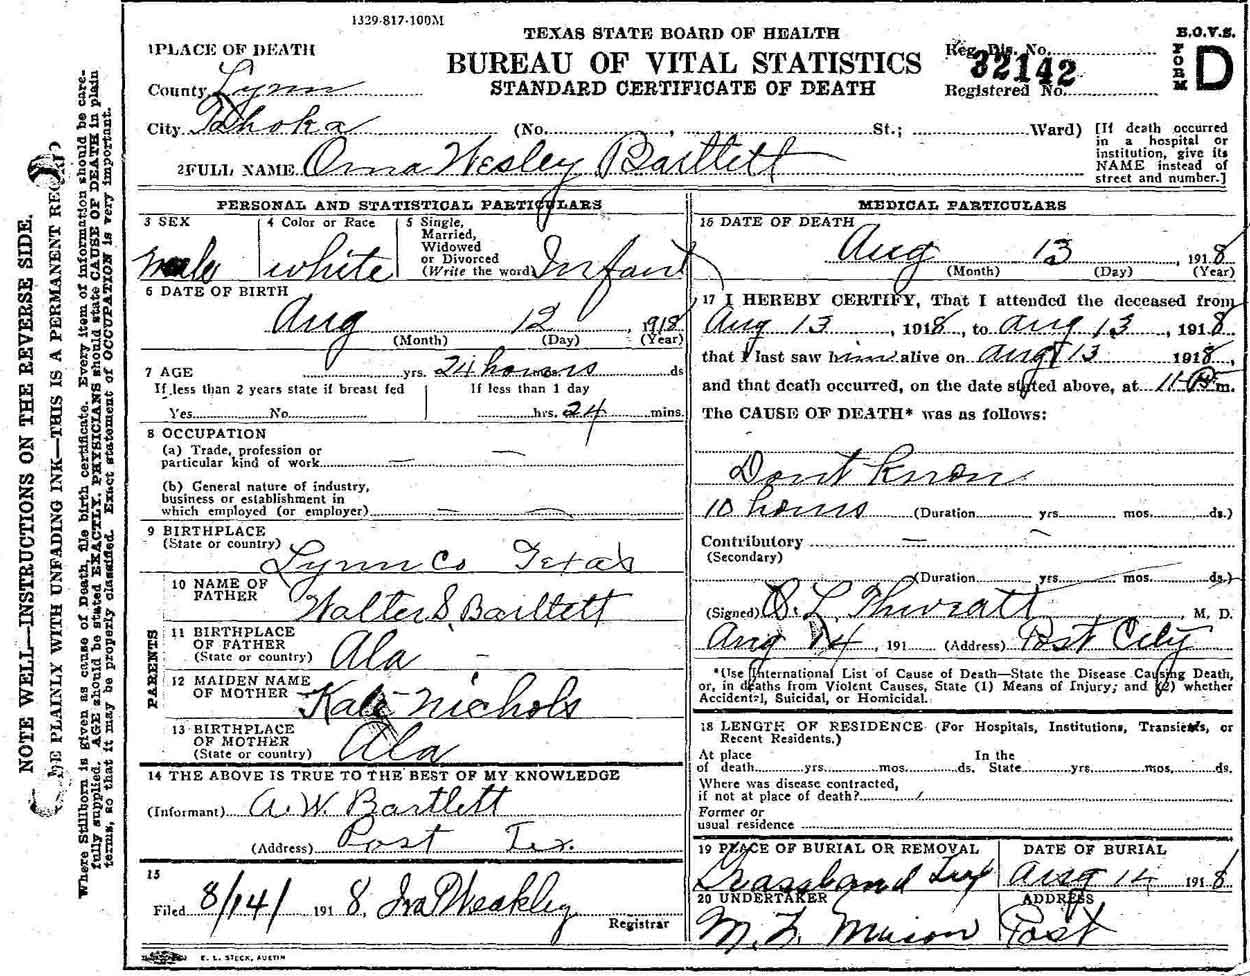 1329-817-100M
TEXAS STATE BOARD OF HEALTH
BUREAU OF VITAL STATISTICS
STANDARD CERTIFICATE OF DEATH
B.O.V.S.
FORM D
Reg. Dis. No.
32142
Registered No.
1 PLACE OF DEATH
County Lynn
City Tahoka (No. , St.; Ward)
[If death occurred in a hospital or institution, give its NAME instead of street and number.]
2 FULL NAME Oma Wesley Bartlett
PERSONAL AND STATISTICAL PARTICULARS
3 SEX
male
4 Color or Race
white
5 Single, Married, Widowed or Divorced (Write the word) Infant
6 DATE OF BIRTH
Aug 12, 1918
(Month) (Day) (Year)
7 AGE
yrs. 24 hours ds
If less than 2 years state if breast fed
Yes No
If less than 1 day
hrs. 24 mins.
8 OCCUPATION
(a) Trade, profession or
particular kind of work — —
(b) General nature of industry,
business or establishment in
which employed (or employer) — —
9 BIRTHPLACE
(State or country) Lynn Co Texas
PARENTS
10 NAME OF FATHER Walter S. Bartlett
11 BIRTHPLACE OF FATHER
(State or country) Ala -
12 MAIDEN NAME OF MOTHER Kate Nichols
13 BIRTHPLACE OF MOTHER
(State or country) Ala
14 THE ABOVE IS TRUE TO THE BEST OF MY KNOWLEDGE
(Informant) A. W. Bartlett
(Address) Post Tex.
15
Filed 8/14/ 1918, Ira Weakley
Registrar
E. L. STECK, AUSTIN
MEDICAL PARTICULARS
16 DATE OF DEATH
Aug 13, 1918
(Month) (Day) (Year)
17 I HEREBY CERTIFY, That I attended the deceased from
Aug 13, 1918, to Aug 13, 1918
that I last saw him alive on Aug 13 1918,
and that death occurred, on the date stated above, at 11 P m.
The CAUSE OF DEATH* was as follows:
Dont know
10 hours (Duration yrs. mos. ds.)
Contributory — —
(Secondary)
(Duration yrs. mos. ds.)
(Signed) L. Thweatt, M. D.
Aug 14, 191 (Address) Post City
*Use International List of Cause of Death—State the Disease Causing Death,
or, in deaths from Violent Causes, State (1) Means of Injury; and (2) whether
Accidental, Suicidal, or Homicidal.
18 LENGTH OF RESIDENCE (For Hospitals, Institutions, Transients, or
Recent Residents.)
At place In the
of death yrs. mos. ds. State yrs. mos. ds.
Where was disease contracted,
if not at place of death?
Former or
usual residence
19 PLACE OF BURIAL OR REMOVAL
Grassland Tex
DATE OF BURIAL
Aug 14 1918
20 UNDERTAKER
M. F. Mason
ADDRESS
Post
NOTE WELL—INSTRUCTIONS ON THE REVERSE SIDE.
PLAINLY WITH UNFADING INK—THIS IS A PERMANENT RECORD
Where Stillborn is given as cause of Death, file birth certificate. Every item of information should be care-
fully supplied. AGE should be stated EXACTLY. PHYSICIANS should state CAUSE OF DEATH in plain
terms, so that it may be properly classified. Exact statement of OCCUPATION is very important.